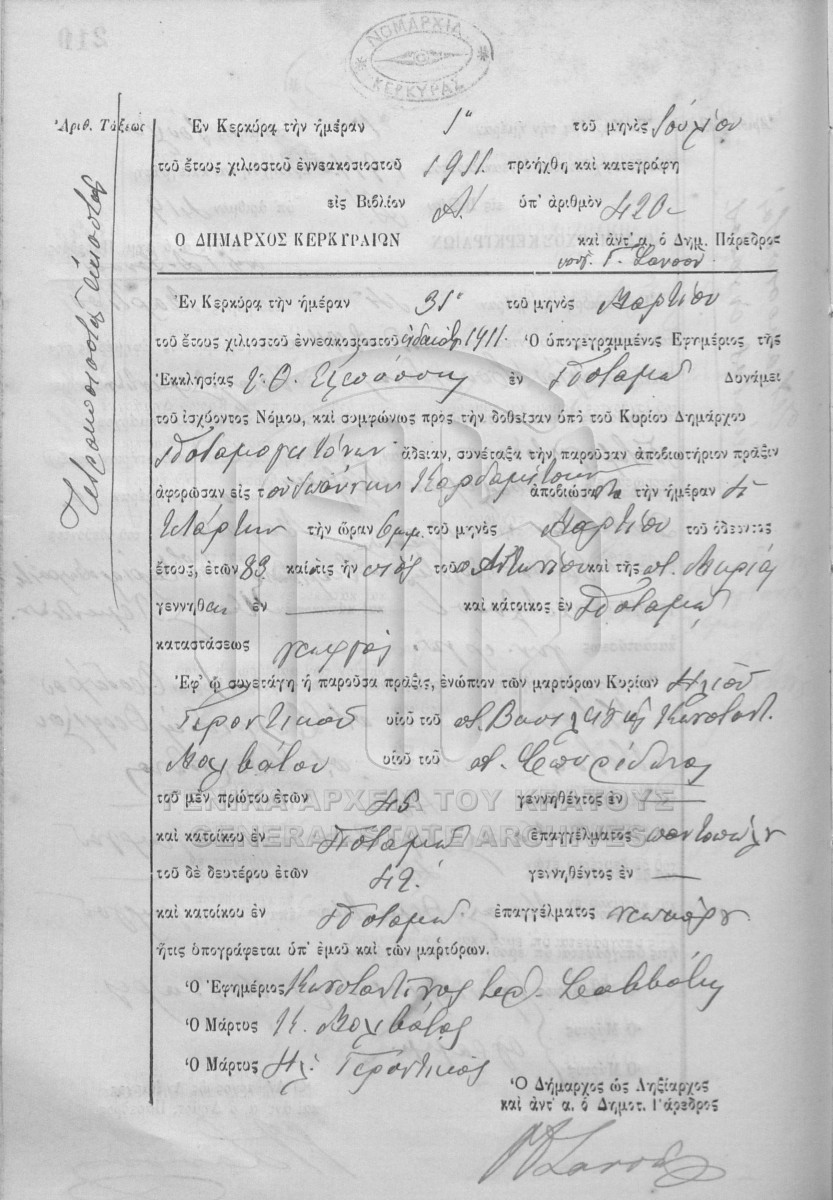 ΝΟΜΑΡΧΙΑ
ΚΕΡΚΥΡΑΣ
Ἀριθ. Τάξεως
Τετρακοσιοστὸς εἰκοστὸς
Ἐν Κερκύρᾳ τὴν ἡμέραν 1η τοῦ μηνὸς Ἰουλίου
τοῦ ἔτους χιλιοστοῦ ἐννεακοσιοστοῦ 1911 προήχθη καὶ κατεγράφη
εἰς Βιβλίον Α! ὑπ' ἀριθμὸν 420
Ο ΔΗΜΑΡΧΟΣ ΚΕΡΚΥΡΑΙΩΝ καὶ ἀντ' α. ὁ Δημ. Πάρεδρος
Ἐν Κερκύρᾳ τὴν ἡμέραν 31η τοῦ μηνὸς Μαρτίου
τοῦ ἔτους χιλιοστοῦ ἐννεακοσιοστοῦ ἑνδεκάτου 1911. Ὁ ὑπογεγραμμένος Ἐφημέριος τῆς
Ἐκκλησίας Ὑ. Θ. Ἐλεούσης ἐν Ποταμῷ Δυνάμει
τοῦ ἰσχύοντος Νόμου, καὶ συμφώνως πρὸς τὴν δοθεῖσαν ὑπὸ τοῦ Κυρίου Δημάρχου
Ποταμογειτόνων ἄδειαν, συνέταξα τὴν παροῦσαν ἀποβιωτήριον πρᾶξιν
ἀφορῶσαν εἰς τὸν Ἰωάννην Καρδαμίτσην ἀποβιώσαντα τὴν ἡμέραν 4
Τετάρτην τὴν ὥραν 6 μμ. τοῦ μηνὸς Μαρτίου τοῦ ὁδεύοντος
ἔτους, ἐτῶν 83 καὶ τις ἦν υἱὸς τοῦ π. Ἀντωνίου καὶ τῆς π. Μαρίας
γεννηθεὶς ἐν — καὶ κάτοικος ἐν Ποταμῷ
καταστάσεως γεωργὸς
Ἐφ' ᾧ συνετάγη ἡ παροῦσα πρᾶξις, ἐνώπιον τῶν μαρτύρων Κυρίων Ἠλιοῦ
Γεροντικοῦ υἱοῦ τοῦ π. Βασιλείου καὶ Κωνσταντ.
Μολβάτου υἱοῦ τοῦ π. Σπυρίδωνος
τοῦ μὲν πρώτου ἐτῶν 45 γεννηθέντος ἐν —
ΓΕΝΙΚΑ ΑΡΧΕΙΑ ΤΟΥ ΚΡΑΤΟΥΣ
GENERAL STATE ARCHIVES
καὶ κατοίκου ἐν Ποταμῷ ἐπαγγέλματος παντοπώλου
τοῦ δὲ δευτέρου ἐτῶν 42 γεννηθέντος ἐν —
καὶ κατοίκου ἐν Ποταμῷ ἐπαγγέλματος
ἥτις ὑπογράφεται ὑπ' ἐμοῦ καὶ τῶν μαρτύρων.
Ὁ Ἐφημέριος Κωνσταντῖνος
Ὁ Μάρτυς Κ. Μολβάτος
Ὁ Μάρτυς Ἠλ. Γερόντικος
Ὁ Δήμαρχος ὡς Ληξίαρχος
καὶ ἀντ' α. ὁ Δημοτ. Πάρεδρος